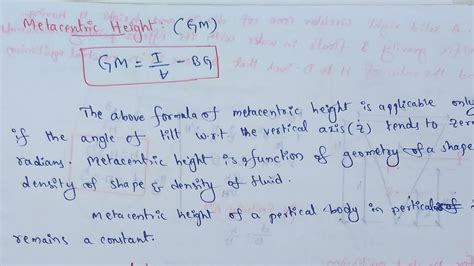 Metacentric Height (GM)
GM = I/V - BG
The above formula of metacentric height is applicable only
if the angle of tilt w.r.t the vertical axis (z) tends to zero
radians. Metacentric height is a function of geometry of a shape
density of shape & density of fluid.
metacentric height of a pertical body in perticals of
remains a constant.